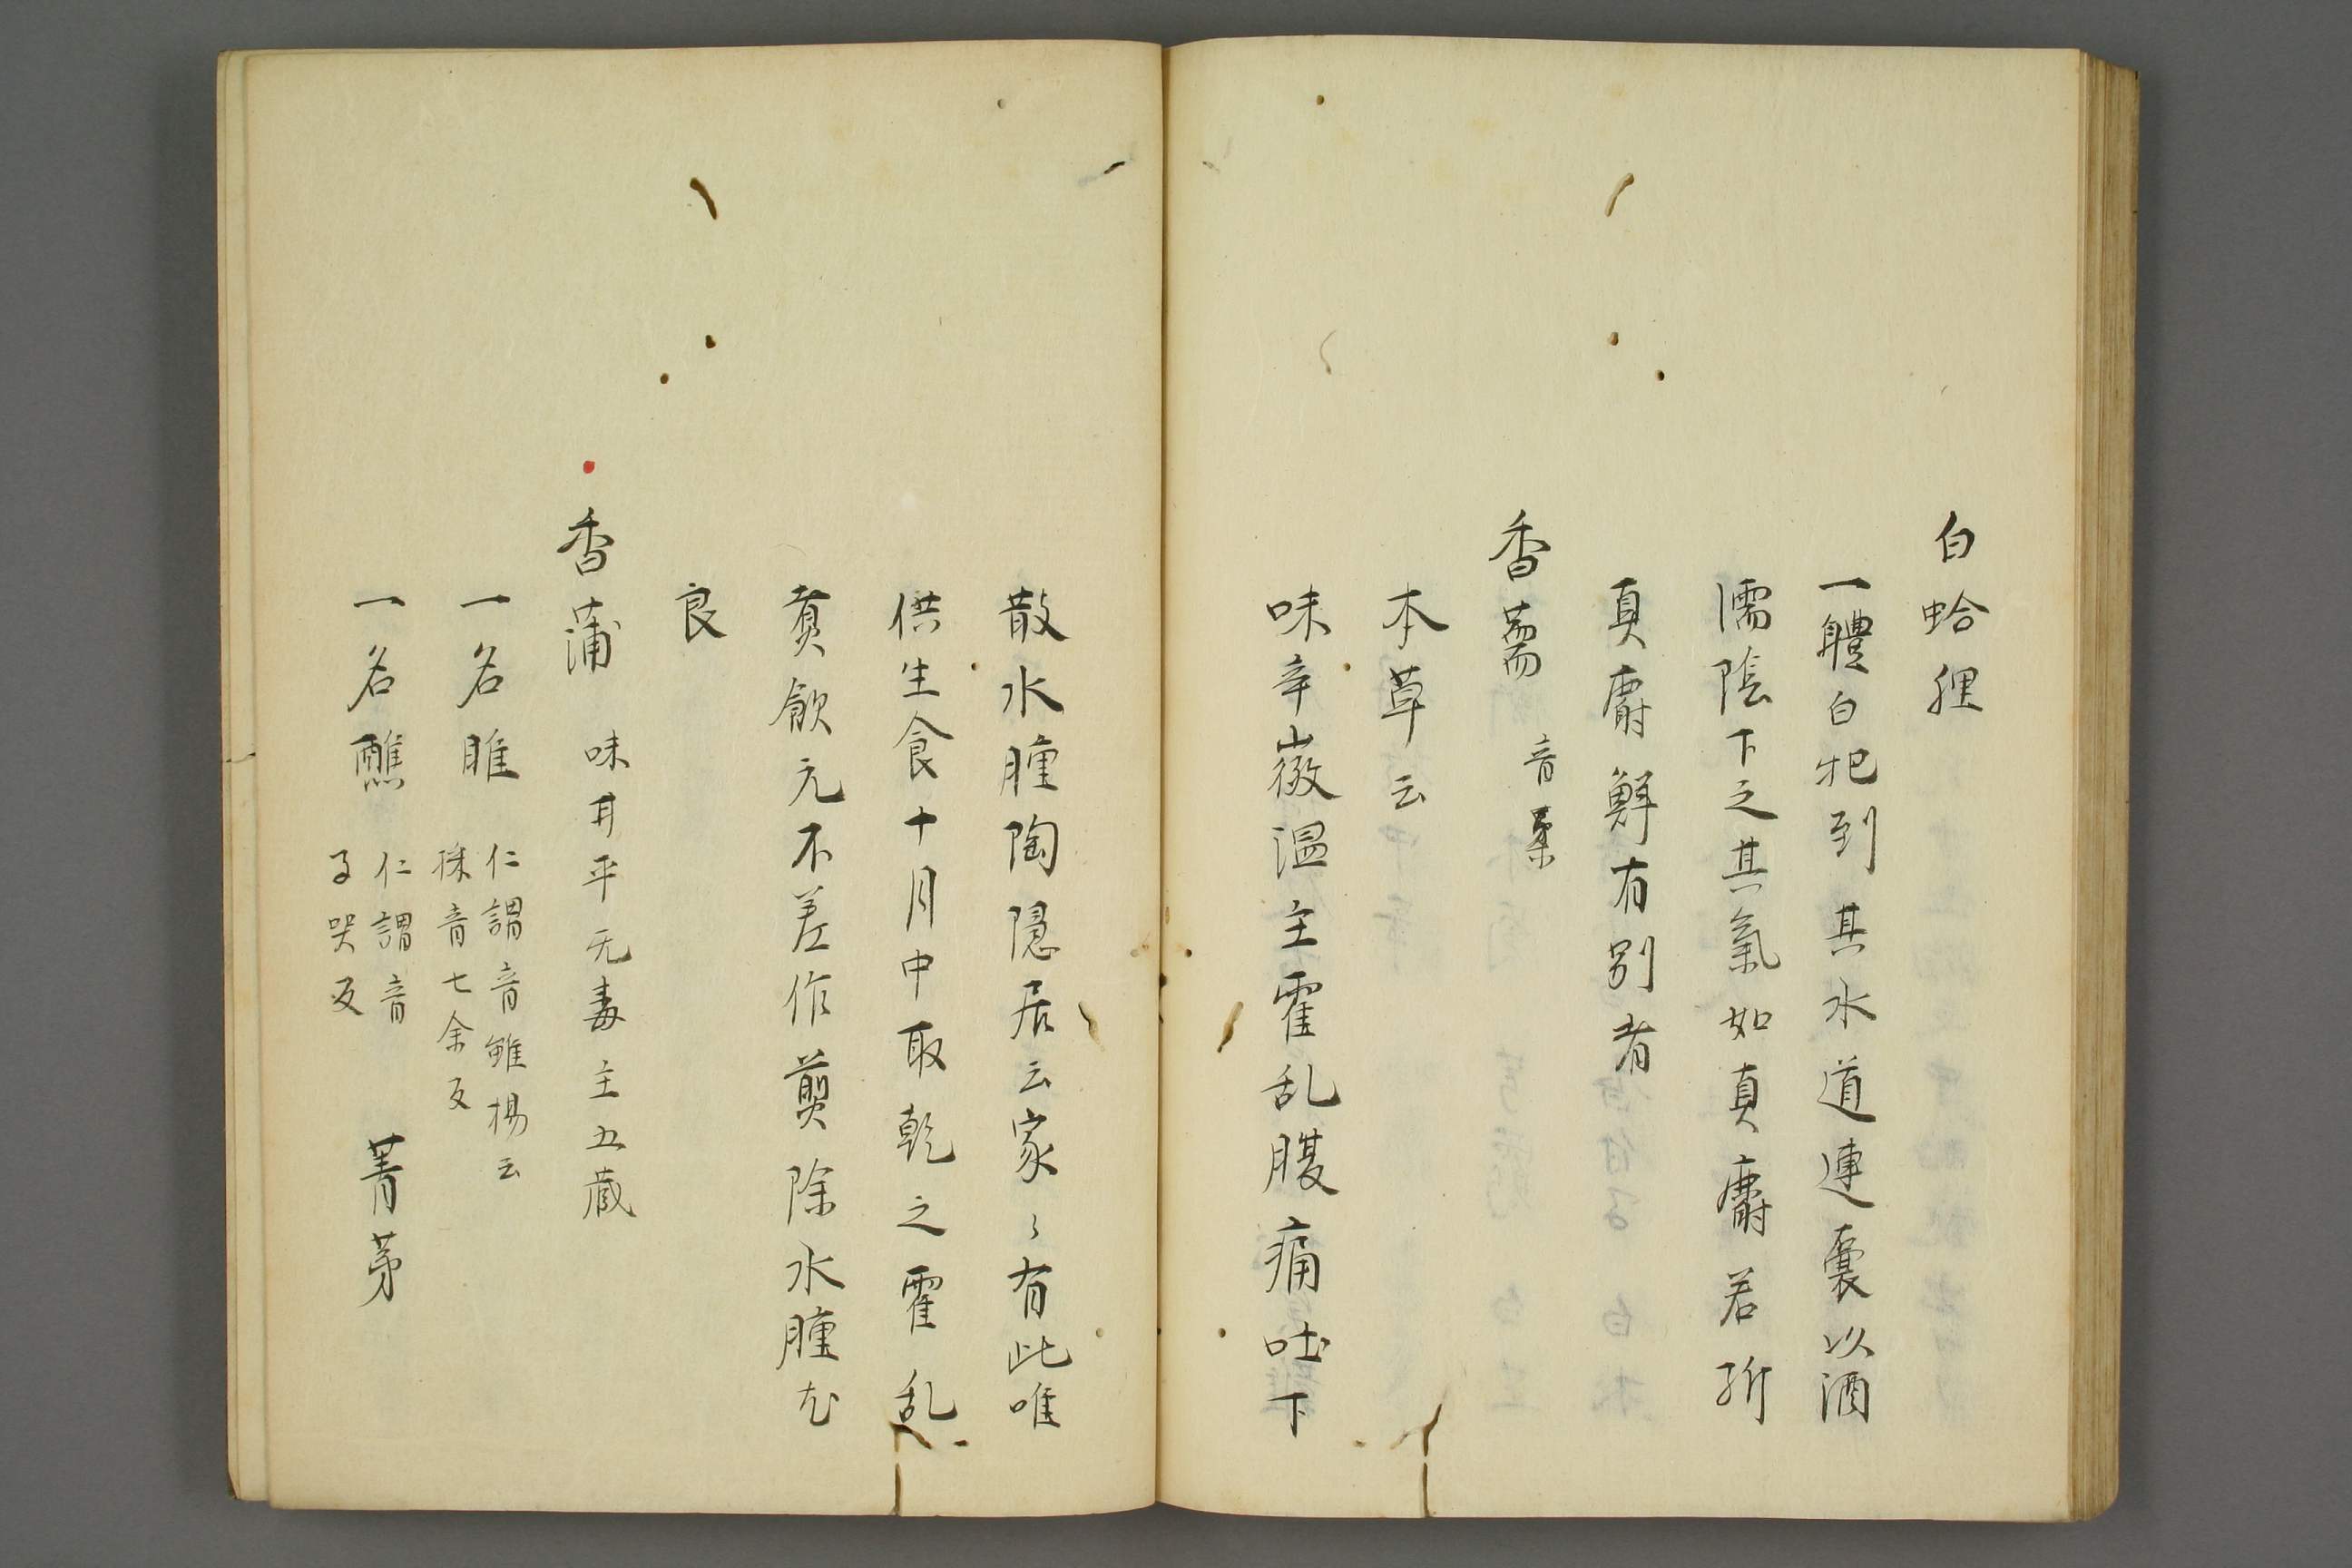 白蛤狸
一體白杷到其水道連囊以酒
濡陰下之其氣如真麝若斫
真麝鮮有別者
香薷 音柔
本草云
味辛微温主霍乱腹痛吐下
散水腫陶隠居云家〻有此唯
供生食十月中取乾之霍乱
煮飲无不差作煎除水腫尤
良
香蒲 味甘平无毒主五蔵
一名睢 仁謂音雖楊云
採音七余反
一名醮 仁謂音
子哭反 菁茅